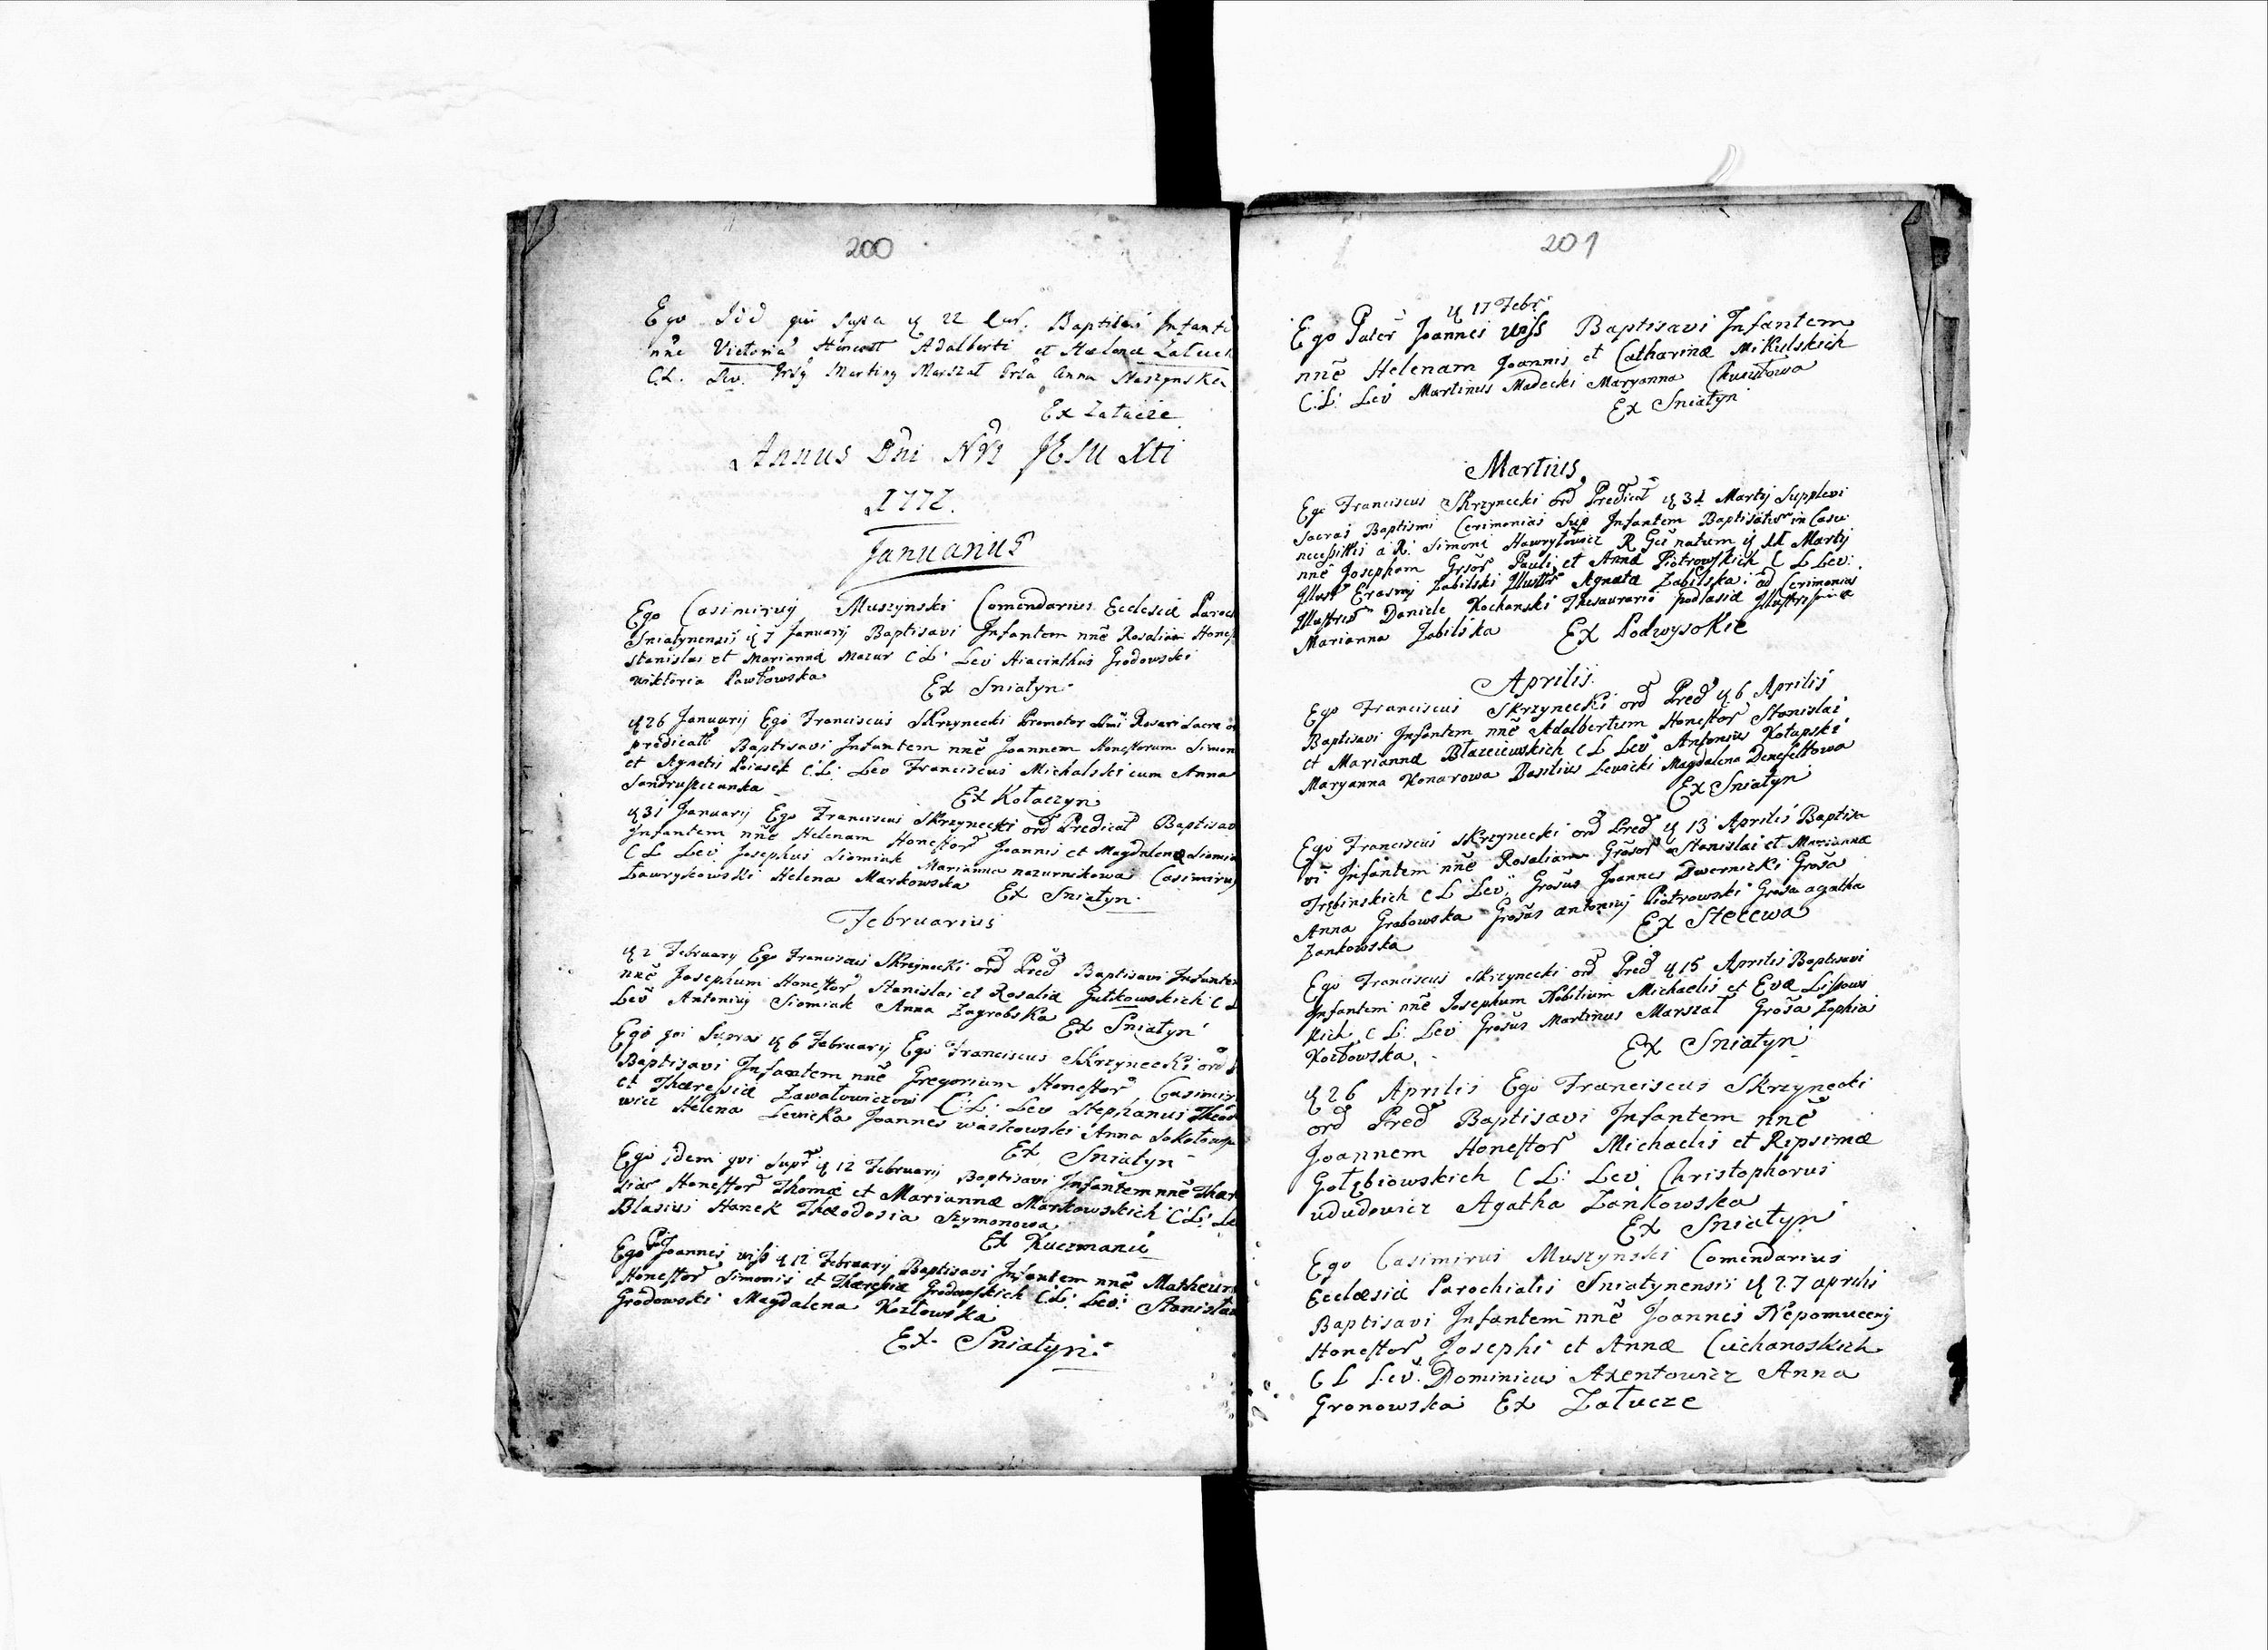 200
Ego Idē qui supra q 22 Eius. Baptisavi Infantē
nne Victoriā Honestt Adalberti et Helenæ Załuck
C.L. Lev. Grsq Marting Marszał Grsa Anna Staszynska
Ex Załucze
Annus Dni Nri JESU Xti
1772.
Januarius
Ego Casimiruq Muszynski Comendarius Ecclesiæ Paroch
Sniatynensis q 7 Januarij Baptisavi Infantem nnē Rosaliam Honest
Stanislai et Mariannæ Mazur C L: Lev Hiacinthus Grodowski
Wiktoria Pawłowska
Ex Sniatyn
q 26 Januarij Ego Franciscus Skrzynecki Promotor Smi Rosarij Sacra or
predicatt Baptisavi Infantem nnē Joannem Honestorum Simon
et Agnetis Poiasek C.L: Lev Franciscus Michalski cum Anna
Sandruszczanska
Ex Kołaczyn
q 31 Januarij Ego Franciscus Skrzynecki ord Predicat Baptisav
Infantem nnē Helenam Honestor Joannis et Magdalenæ Siomia
C L Lev Josephus Siomiak Marianna nazurnikowa Casimiruq
Ławrykowski Helena Markowska
Ex Sniatyn
Februarius
q 2 February Ego Franciscus Skrzynecki ord Pred Baptisavi Infante
nnē Josephum Honestor Stanislai et Rosaliæ Gutkowskich C L
Lev Antoniuq Siomiak Anna Zagrobska
Ex Sniatyn
Ego qui Supra q 6 February Ego Franciscus Skrzynecki ord
Baptisavi Infantem nnē Gregorium Honestor Casimir
et Theressiæ Zawałowiczow C:L: Lev Stephanus Theod
wicz Helena Lewicka Joannes waskowski Anna Sokołowska
Ex Sniatyn
Ego idem qui supr q 12 Februarij Baptisavi Infantem nnē Ther
siar Honestor Thomæ et Mariannæ Markowskich C:L: Le
Blasius Hanek Theodosia Szymonowa
Ex Kuczmanie
Ego Pr Joannes wiss q 12 February Baptisavi Infantem nnē Matheum
Honestor Simonis et Theressiæ Grodowskich C:L: Lev: Stanislau
Grodowski Magdalena Kozłowska
Ex Sniatyn
201
q 17 Febr
Ego Pater Joannes wiss Baptisavi Infantem
nnē Helenam Joannis et Catharinæ Mikulskich
C:L: Lev Martinus Madecki Maryanna
Ex Sniatyn
Martius
Ego Franciscus Skrzynecki ord Predicat q 31 Martij Supplevi
Sacras Baptismi Cerimonias Sup Infantem Baptisatum in Casu
necessitis a R. Simone Hawryłowicz R Gci natum q 11 Martij
nnē Josephum Grsor Pauli et Annæ Piotrowskich C L Lev:
Illustr Erasmq Zabilski Illustr Agnata Zabilska: ad Cerimonias
Illustris Daniele Kochanski Thesaurario podlasiæ Illustrissima
Marianna Zabilska Ex Podwysokie
Aprilis
Ego Franciscus Skrzynecki ord Pred q 6 Aprilis
Baptisavi Infantem nnē Adalbertum Honestor Stanislai
et Mariannæ Błazeiewskich C L Lev Antonius Kołapski
Maryanna Konarowa Basilius Lewicki Magdalena Denefeltowa
Ex Sniatyn
Ego Franciscus Skrzynecki ord Pred q 13 Aprilis Baptisa
vi Infantem nnē Rosaliam Grosor Stanislai et Mariannæ
Trębinskich C L Lev, Grosus Joannes Dwernicki Grosa
Anna Grabowska Grosus antoniuq Piotrowski Grosa agatha
Zankowska Ex Stecewa
Ego Franciscus Skrzynecki ord Pred q 15 Aprilis Baptisavi
Infantem nnē Josephum Nobilium Michaelis et Evæ Lissows
kich, C L: Lev Grosus Martinus Marszał Grosa Zophia
Kozłowska
Ex Sniatyn
q 26 Aprilis Ego Franciscus Skrzynecki
ord Pred Baptisavi Infantem nnē
Joannem Honestor Michaelis et Ripsimæ
Gołębiowskich C L: Lev Christophorus
ududowicz Agatha Zankowska
Ex Sniatyn
Ego Casimirus Muszynski Comendarius
Ecclæsiæ Parochialis Sniatynensis q 27 aprilis
Baptisavi Infantem nnē Joannes Nepomucenq
Honestor Josephi et Annæ Cuichanoskich
C L Lev. Dominicus Axentowicz Anna
Gronowska Ex Załucze